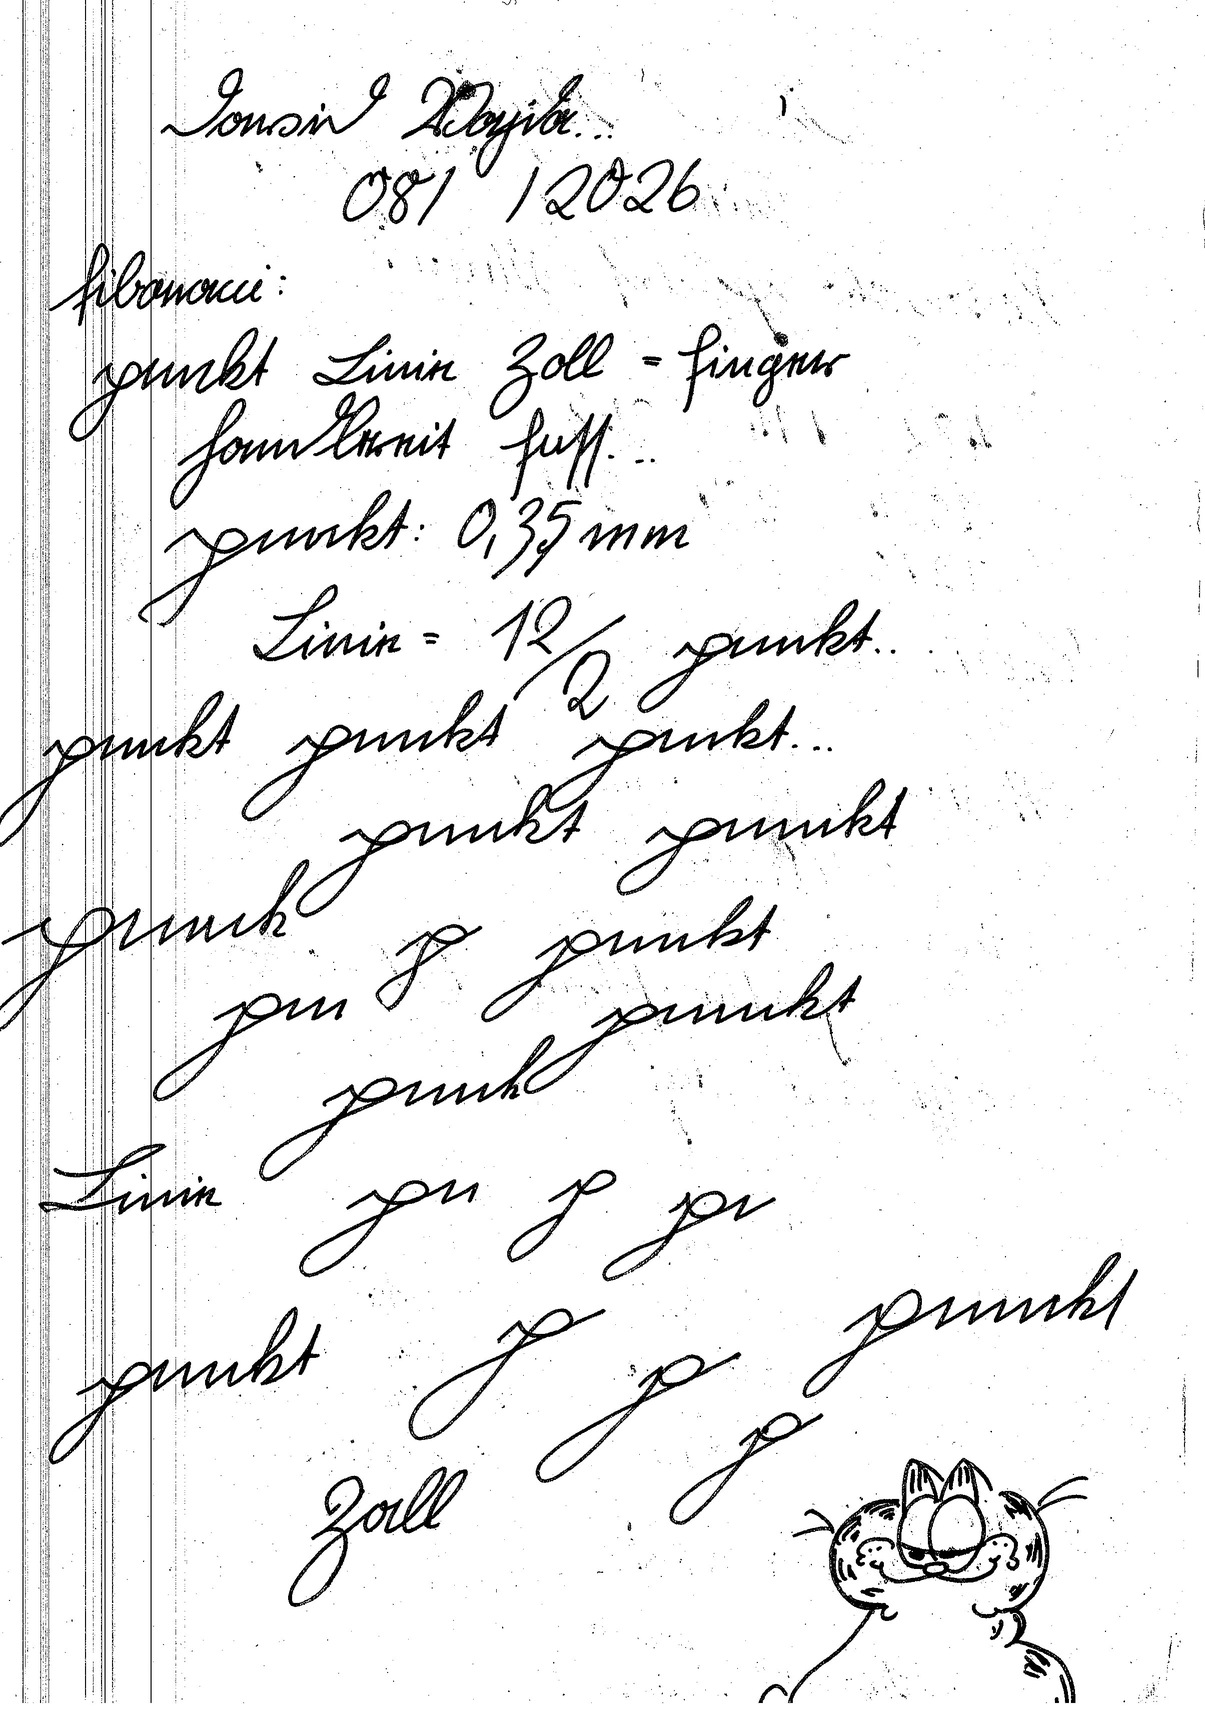 081 / 2026
fibonacci:
punkt Linie Zoll = finger
handbreit fuss...
punkt: 0,35 mm
Linie = 12/2 punkt..
punkt punkt punkt...
punkt punkt
punck p punkt
pun punkt
punk
Linie pu p pu
punkt p p punkt
p
Zoll